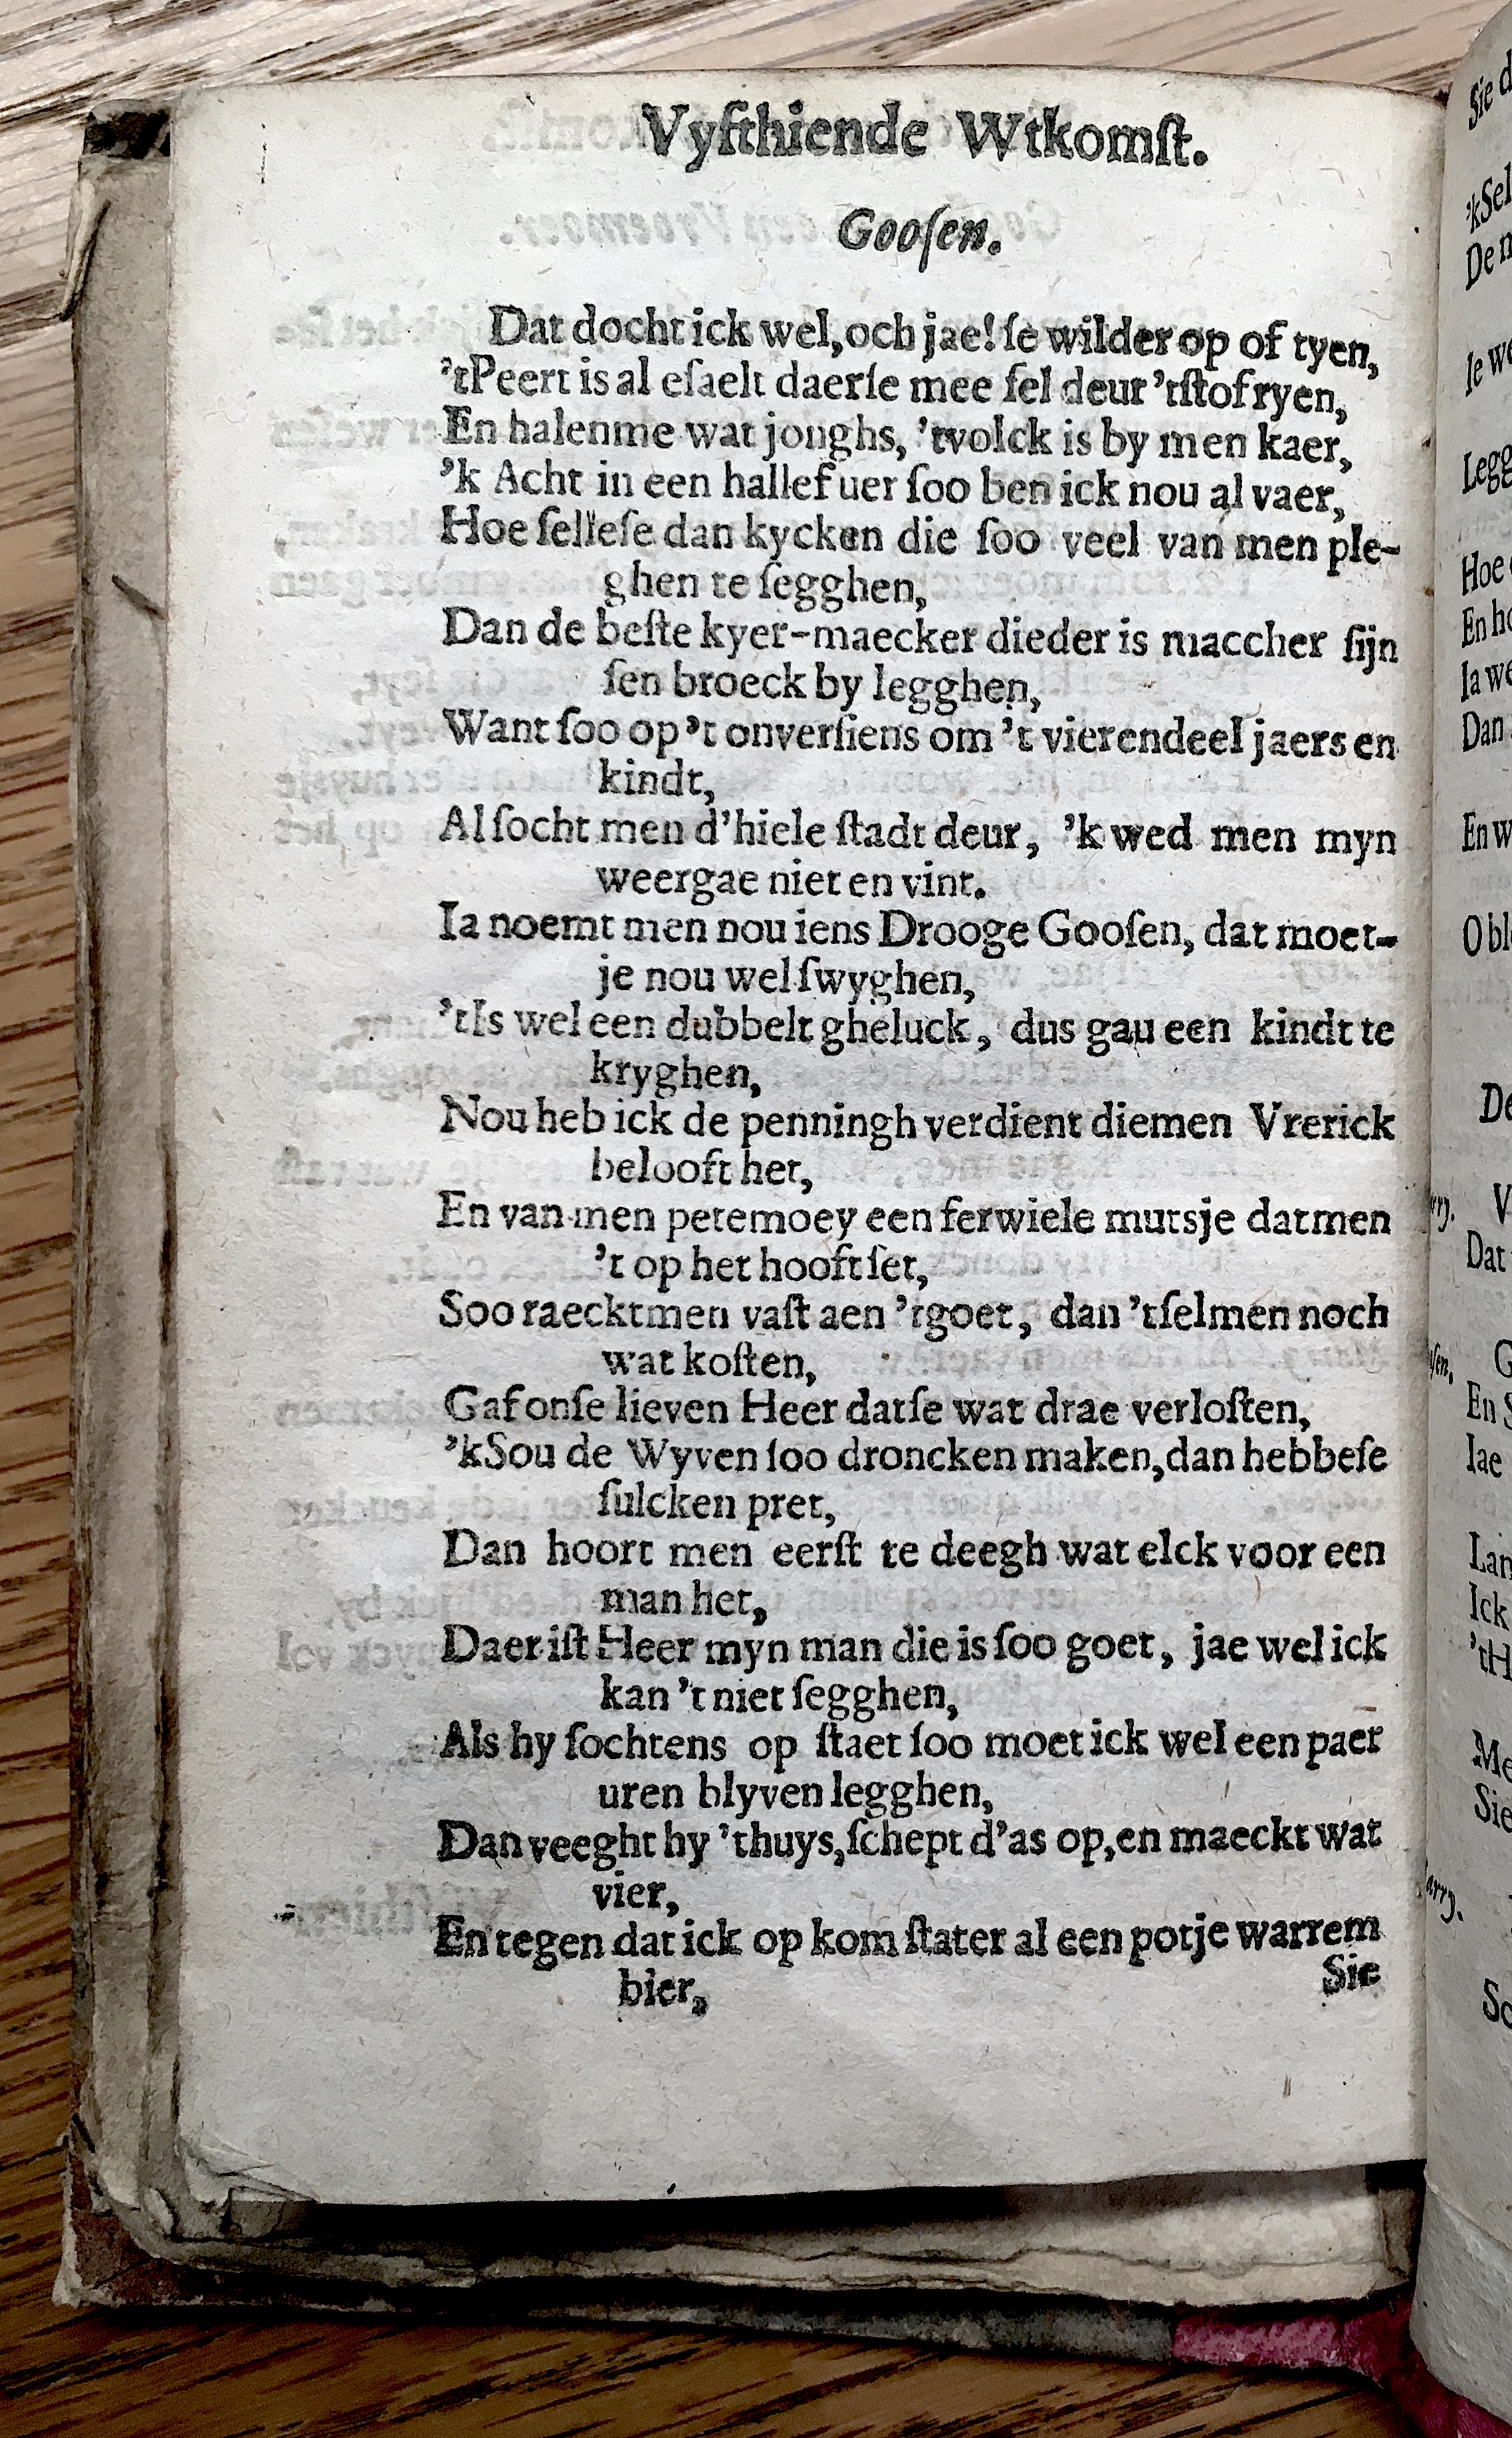 Vyfthiende Wtkomſt.
Gooſen.
Dat docht ick wel, och jae! ſe wilder op of tyen,
'tPeert is al eſaelt daerſe mee ſel deur 'tſtof ryen,
En halenme wat joughs, 'tvolck is by men kaer,
'k Acht in een hallef uer ſoo ben ick nou al vaer,
Hoe ſelleſe dan kycken die ſoo veel van men ple-
ghen te ſegghen,
Dan de beſte kyer-maecker dieder is maccher ſijn
ſen broeck by legghen,
Want ſoo op 't onverſiens om 't vierendeel jaers en
kindt,
Al ſocht men d'hiele ſtadt deur, 'k wed men myn
weergae niet en vint.
Ia noemt men nou iens Drooge Gooſen, dat moet-
je nou wel ſwyghen,
'tIs wel een dubbelt gheluck, dus gau een kindt te
kryghen,
Nou heb ick de penningh verdient diemen Vrerick
belooft het,
En van men petemoey een ferwiele mutsje datmen
't op het hooft ſet,
Soo raecktmen vaſt aen 'tgoet, dan 'tſelmen noch
wat koſten,
Gaf onſe lieven Heer datſe wat drae verloſten,
'kSou de Wyven ſoo droncken maken, dan hebbeſe
ſulcken pret,
Dan hoort men eerſt te deegh wat elck voor een
man het,
Daer iſt Heer myn man die is ſoo goet, jae wel ick
kan 't niet ſegghen,
Als hy ſochtens op ſtaet ſoo moet ick wel een paer
uren blyven legghen,
Dan veeght hy 'thuys, ſchept d'as op, en maeckt wat
vier,
En tegen dat ick op kom ſtater al een potje warrem
bier,
Sie